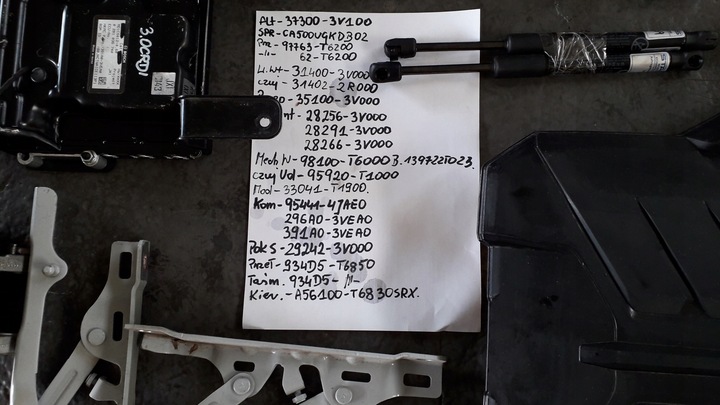 3.0CRDI
Alt - 37300-3V100
SPR - CA500VGKDB02
Prz - 97763-T6200
-11- 62-T6200
W.wt - 31400-3V000
Czuj - 31402-2R000
35100-3V000
nt - 28256-3V000
28291-3V000
28266-3V000
Mech.W - 98100-T6000 3.139722T023
Czuj.Ud - 95920-T1000
Mod - 33041-T1900.
Kom - 95441-47AE0
296A0-3VEA0
391A0-3VEA0
Pok S - 29242-3V000
PrzeŁ - 934D5-T6850
Taśm. 934D5- -11-
Kier. - A56100-T6830SRX.